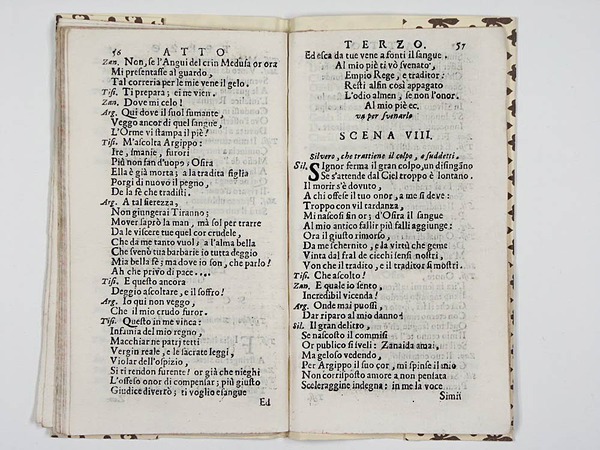 56 ATTO
Zan. Non, se l'Angui del crin Medusa or ora
Mi presentasse al guardo,
Tal correria per le mie vene il gelo.
Tisi. Ti prepara; ei ne vien.
Zan. Dove mi celo!
Arg. Qui dove il suol fumante,
Veggo ancor di quel sangue,
L'Orme vi stampa il piè!
Tisi. M'ascolta Argippo:
Ire, smanie, furori
Più non fan d'uopo; Osira
Ella è già morta; a la tradita figlia
Porgi di nuovo il pegno,
De la fè che tradisti.
Arg. A tal fierezza,
Non giungerai Tiranno;
Mover saprò la man, mà sol per trarre
Da le viscere tue quel cor crudele,
Che da me tanto vuol; a l'alma bella
Che svenò tua barbarie io tutta deggio
Mia bella fè; ma dove io son, che parlo!
Ah che privo di pace....
Tisi. E questo ancora
Deggio ascoltare, e il soffro!
Arg. Io qui non veggo,
Che il mio crudo furor.
Tisi. Questo in me vinca:
Infamia del mio regno,
Macchiar ne patrj tetti
Vergin reale, e le sacrate leggi,
Violar dell'ospizio,
Si ti rendon furente! or già che nieghi
L'offeso onor di compensar; più giusto
Giudice diverrò; ti voglio esangue
Ed
TERZO. 57
Ed esca da tue vene a fonti il sangue.
Al mio piè ti vò svenato,
Empio Rege, e traditor:
Resti alfin così appagato
L'odio almen, se non l'onor.
Al mio piè ec.
va per svenarlo
SCENA VIII.
Silvero, che trattiene il colpo, e suddetti.
Sil. SIgnor ferma il gran colpo, un disingãno
Se s'attende dal Ciel troppo è lontano.
Il morir s'è dovuto,
A chi offese il tuo onor, a me si deve:
Troppo con vil tardanza,
Mi nascosi fin or; d'Osira il sangue
Al mio antico fallir più falli aggiunge:
Ora il giusto rimorso,
Da me schernito, e la virtù che geme
Vinta dal fral de ciechi sensi nostri,
Von che il tradito, e il traditor si mostri.
Tisi. Che ascolto!
Zan. E quale io sento,
Incredibil vicenda!
Arg. Onde mai puossi,
Dar riparo al mio danno!
Sil. Il gran delitto,
Se nascosto il commisi
Or publico si sveli: Zanaida amai,
Ma geloso vedendo,
Per Argippo il suo cor, mi spinse il mio
Non corrisposto amore a non pensata
Sceleraggine indegna: in me la voce
Simil